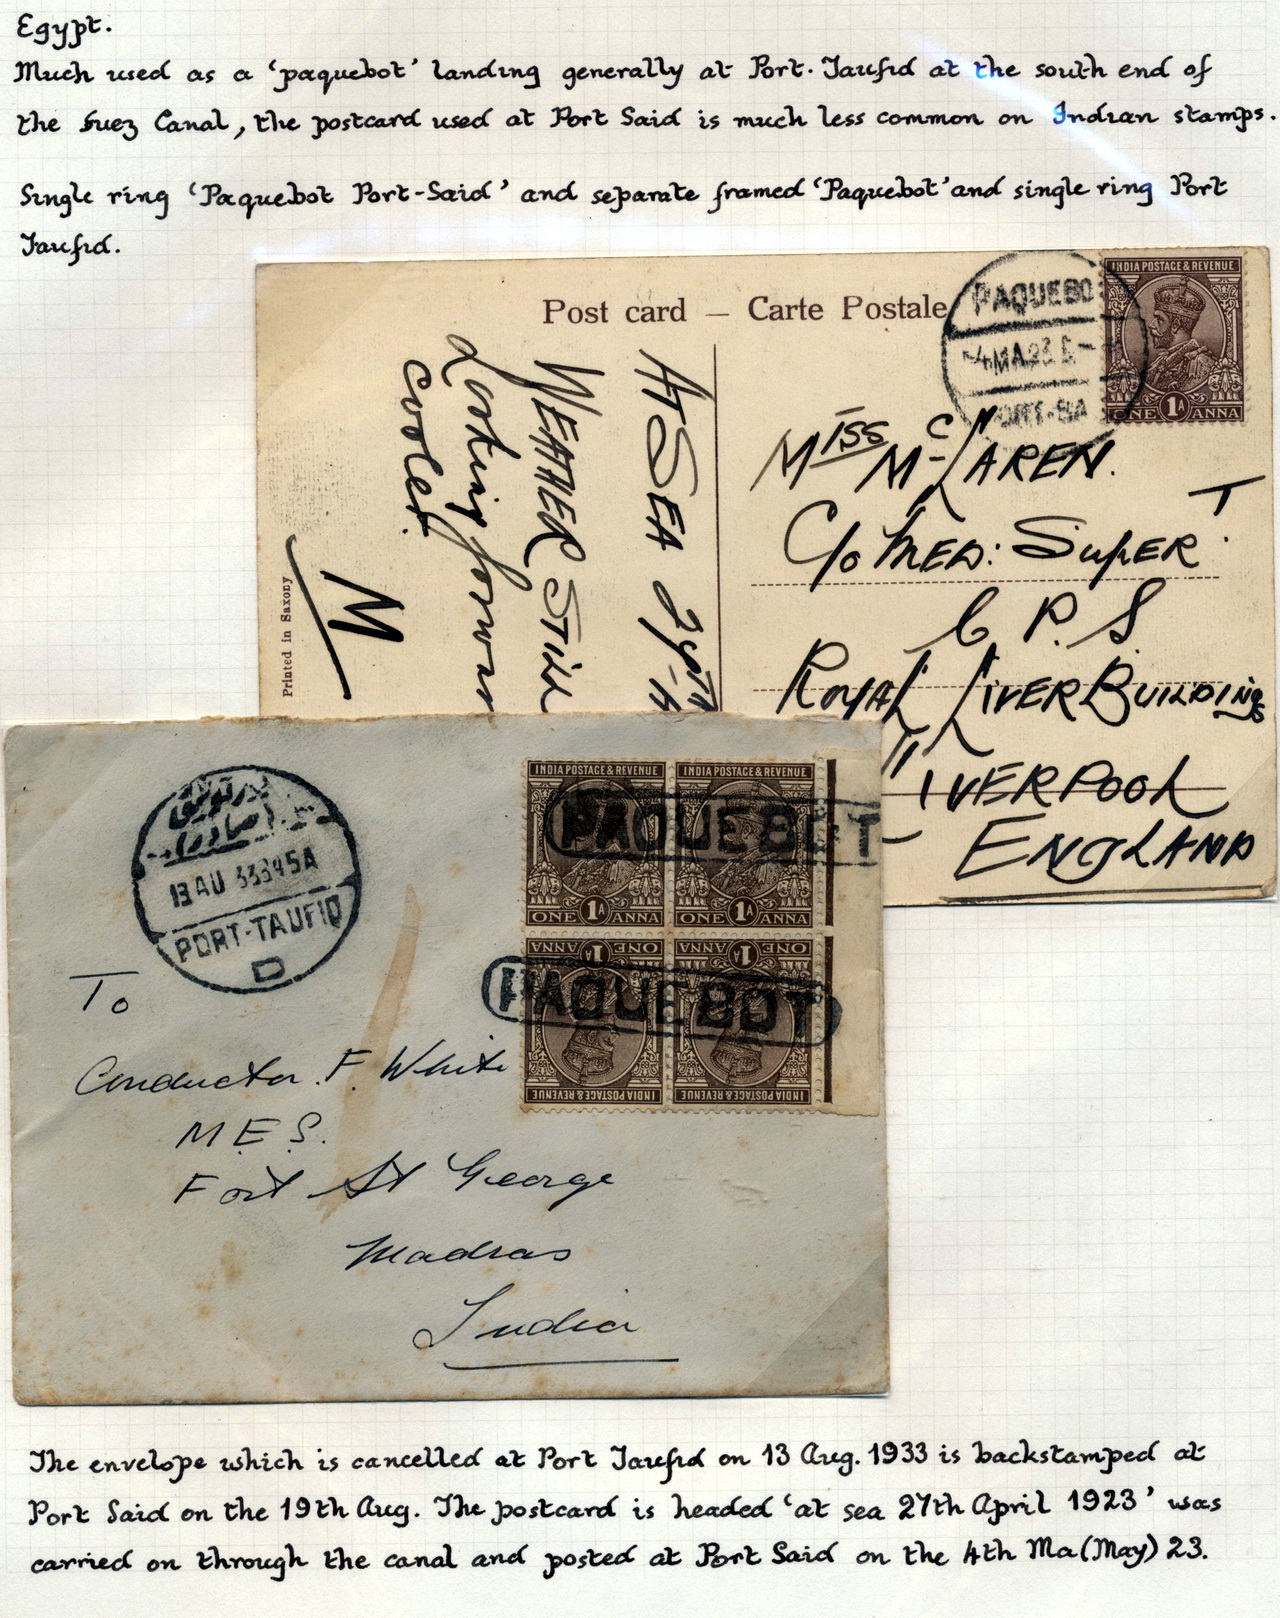 Egypt.
Much used as a 'paquebot' landing generally at Port. Taufid at the south end of
the Suez Canal, the postcard used at Port Said is much less common on Indian stamps.
Single ring 'Paquebot Port-Said' and separate framed 'Paquebot' and single ring Port
Taufid.
Post card – Carte Postale
PAQUEBO
-4 MA 23
PORT-SA
INDIA POSTAGE & REVENUE
ONE 1A ANNA
AT SEA 27TH
WEATHER STILL
Looking forward
cooler.
M
Printed in Saxony
MISS McLAREN.
C/o MED: SUPERT.
C. P. S.
ROYAL LIVER BUILDINGS
LIVERPOOL
ENGLAND
بور توفيق
صادر
13 AU 33 845A
PORT-TAUFIQ
D
INDIA POSTAGE & REVENUE INDIA POSTAGE & REVENUE
PAQUEBOT
ONE 1A ANNA ONE 1A ANNA
ONE 1A ANNA ONE 1A ANNA
PAQUEBOT
INDIA POSTAGE & REVENUE INDIA POSTAGE & REVENUE
To
Conductor F. White
M.E.S.
Fort St George
Madras
India
The envelope which is cancelled at Port Taufid on 13 Aug. 1933 is backstamped at
Port Said on the 19th Aug. The postcard is headed 'at sea 27th April 1923' was
carried on through the canal and posted at Port Said on the 4th Ma (May) 23.